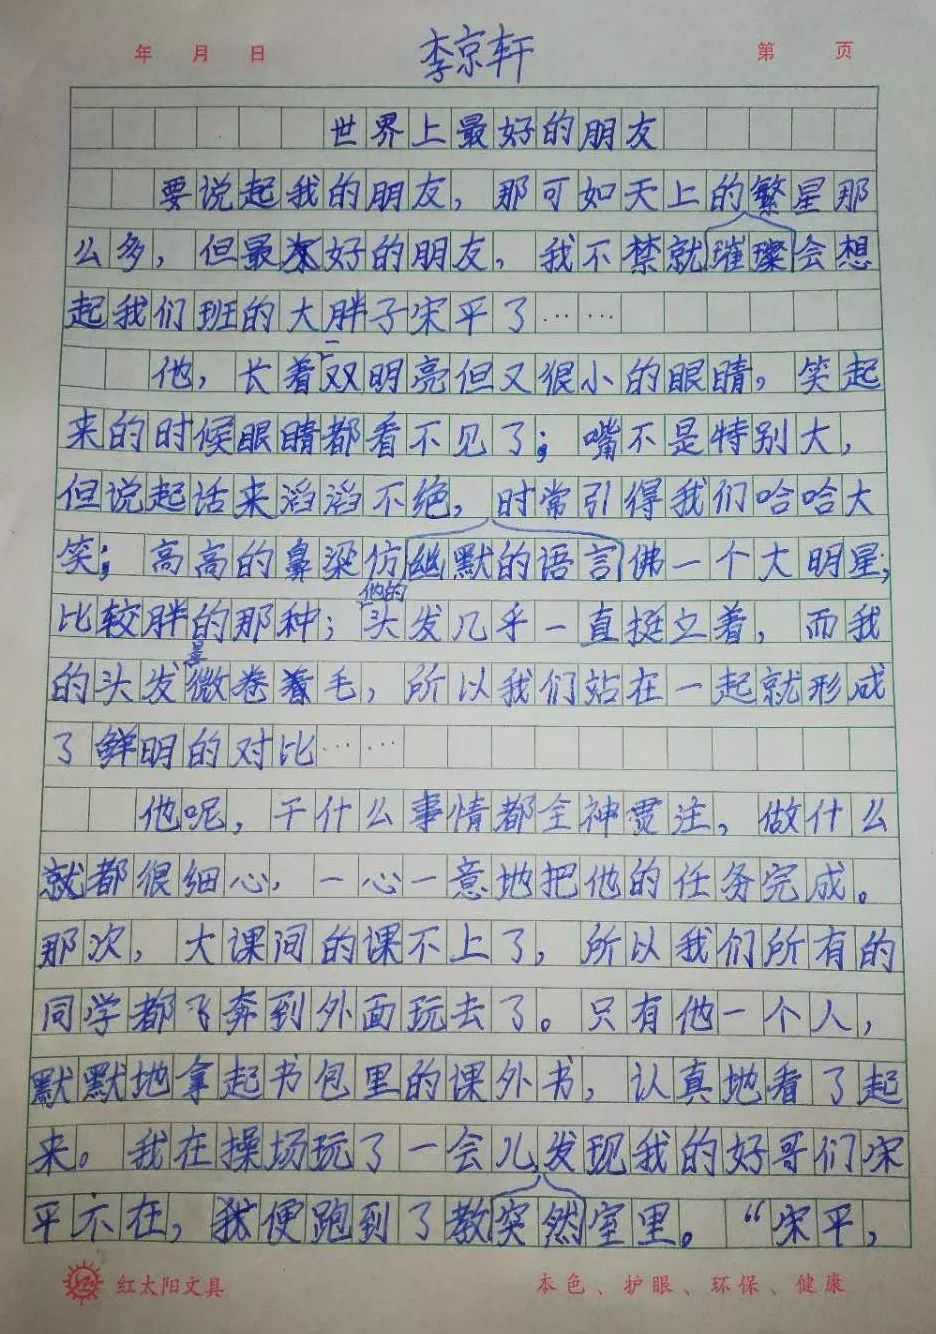 年 月 日 李京轩 第 页
世界上最好的朋友
要说起我的朋友，那可如天上的繁星那
么多，但最好的朋友，我不禁就璀璨会想
起我们班的大胖子宋平了……
一
他，长着双明亮但又很小的眼睛，笑起
来的时候眼睛都看不见了；嘴不是特别大，
但说起话来滔滔不绝，时常引得我们哈哈大
笑；高高的鼻梁仿幽默的语言佛一个大明星；
他的
比较胖的那种；头发几乎一直挺立着，而我
是
的头发微卷着毛，所以我们站在一起就形成
了鲜明的对比……
他呢，干什么事情都全神贯注，做什么
就都很细心，一心一意地把他的任务完成。
那次，大课间的课不上了，所以我们所有的
同学都飞奔到外面玩去了。只有他一个人，
默默地拿起书包里的课外书，认真地看了起
来。我在操场玩了一会儿发现我的好哥们宋
平不在，我便跑到了教突然室里。“宋平，
红太阳文具 本色、护眼、环保、健康